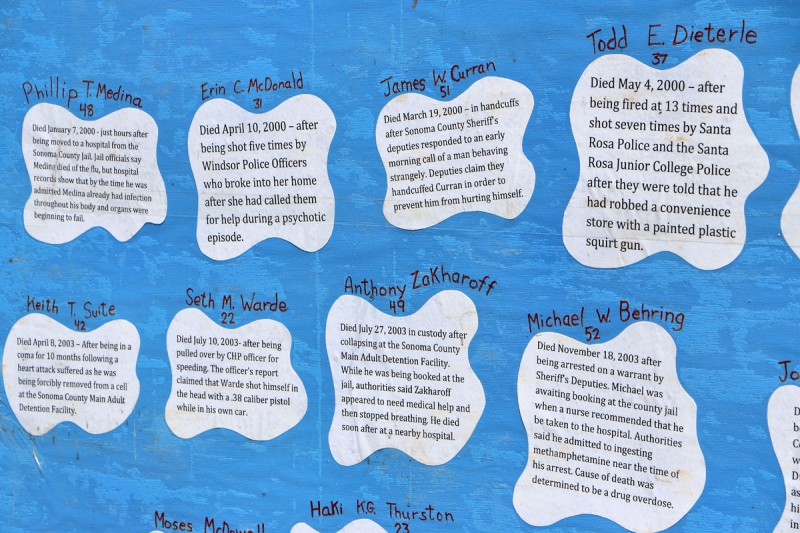 Phillip T. Medina
48
Died January 7, 2000 - just hours after
being moved to a hospital from the
Sonoma County Jail. Jail officials say
Medina died of the flu, but hospital
records show that by the time he was
admitted Medina already had infection
throughout his body and organs were
beginning to fail.
Erin C. McDonald
31
Died April 10, 2000 – after
being shot five times by
Windsor Police Officers
who broke into her home
after she had called them
for help during a psychotic
episode.
James W. Curran
51
Died March 19, 2000 – in handcuffs
after Sonoma County Sheriff's
deputies responded to an early
morning call of a man behaving
strangely. Deputies claim they
handcuffed Curran in order to
prevent him from hurting himself.
Todd E. Dieterle
37
Died May 4, 2000 – after
being fired at 13 times and
shot seven times by Santa
Rosa Police and the Santa
Rosa Junior College Police
after they were told that he
had robbed a convenience
store with a painted plastic
squirt gun.
Keith T. Suite
42
Died April 8, 2003 – After being in a
coma for 10 months following a
heart attack suffered as he was
being forcibly removed from a cell
at the Sonoma County Main Adult
Detention Facility.
Seth M. Warde
22
Died July 10, 2003- after being
pulled over by CHP officer for
speeding. The officer's report
claimed that Warde shot himself in
the head with a .38 caliber pistol
while in his own car.
Anthony Zakharoff
49
Died July 27, 2003 in custody after
collapsing at the Sonoma County
Main Adult Detention Facility.
While he was being booked at the
jail, authorities said Zakharoff
appeared to need medical help and
then stopped breathing. He died
soon after at a nearby hospital.
Michael W. Behring
52
Died November 18, 2003 after
being arrested on a warrant by
Sheriff's Deputies. Michael was
awaiting booking at the county jail
when a nurse recommended that he
be taken to the hospital. Authorities
said he admitted to ingesting
methamphetamine near the time of
his arrest. Cause of death was
determined to be a drug overdose.
Moses McDowell
Haki K.G. Thurston
23